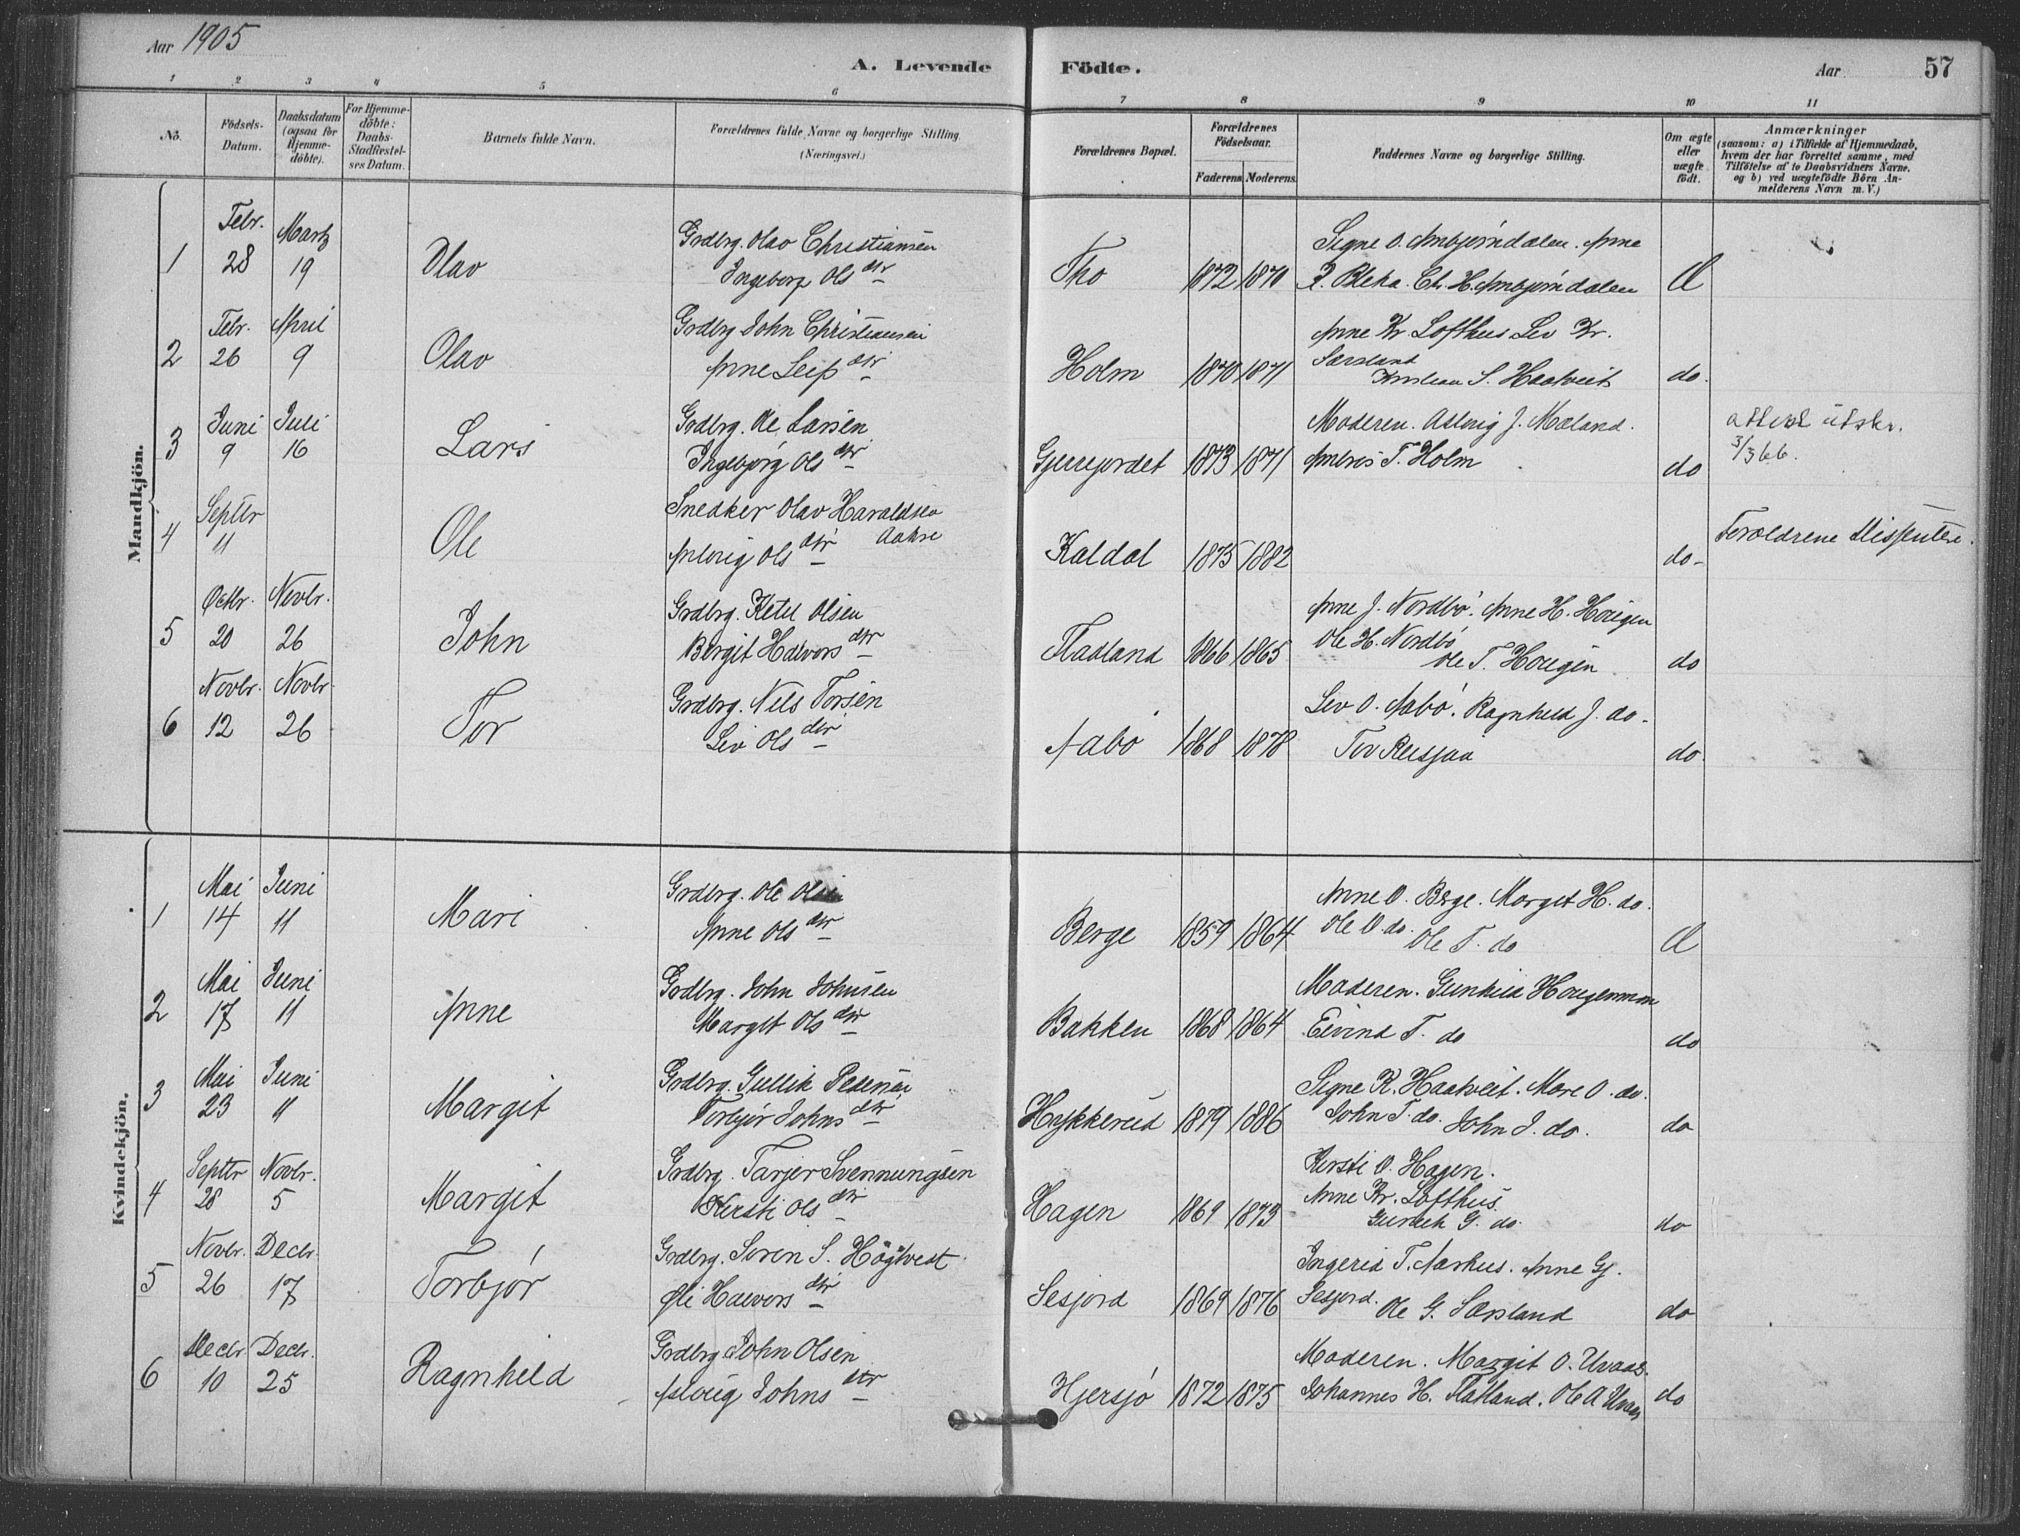 Aar 1905
A. Levende Födte.
Aar 57
1 2 3 4 5 6 7 8 9 10 11
No.
Födsels-Datum.
Daabsdatum (ogsaa for Hjemme-döbte).
For Hjemme-döbte: Daabs-Stadfæstel-ses Datum.
Barnets fulde Navn.
Forældrenes fulde Navne og borgerlige Stilling. (Næringsvei.)
Forældrenes Bopæl.
Forældrenes Födselsaar.
Faderens Moderens
Faddernes Navne og borgerlige Stilling.
Om ægte eller uægte födt.
Anmærkninger
(saasom: a) i Tilfælde af Hjemmedaab,
hvem der har forrettet samme, med
Tilföielse af to Daabsvidners Navne,
og b) ved uægtefödte Börn An-
melderens Navn m. V.)
Mandkjön.
1 Febr. 28 Marts 19 Olav
Grdbrg. Olav Christiansen
Ingeborg Olsdtr
Tho 1872 1870
Signe O. Ambjørndalen. Anne
R. Bleka. Ch. H. Ambjørndalen
Æ
2 Febr. 26 April 9 Olav
Grdbrg John Christiansen
Anne Leifsdtr
Holm 1870 1871
Anne Kr Lofthus Lev Kr.
Sørsland
Kristian S. Haatveit
do.
3 Juni 9 Juli 16 Lars
Grdbrg. Ole Larsen
Ingebjörg Olsdtr
1873 1871
Moderen. Aslaug J. Mæland.
T. Holm
do
attest utskr.
3/3 66.
4 Septbr 11 Ole
Snedker Olav Haraldsen
Aakre
Aslaug Olsdtr
Kaldal 1875 1882
do-
Foreldrene dissentere.
5 Octbr. 20 Novbr. 26 John
Grdbrg. Ketil Olsen
Bergit Halvorsdtr
Fladland 1866 1865
Anne J. Nordbö. Anne H. Hougen
Ole H. Nordbö
Ole T. Hougen
do
6 Novbr. 12 Novbr. 26 Tor
Grdbrg. Nils Torsen
Liv Olsdtr
Aabö 1868 1878
Liv O. Aabö. Ragnhild J. do.
Tov Reisjaa
do
Kvindekjön.
1 Mai 14 Juni 11 Mari
Grdbrg. Ole Olsen
Anne Olsdtr
Berge 1859 1864
Anne O. Berge. Margit H. do.
Ole O. do. Ole T. do
Æ
2 Mai 17 Juni 11 Anne
Grdbrg. John Johnsen
Margit Olsdtr
Bakken 1868 1864
Moderen. Gunhild Hougenmon
Eivind T. do
do
3 Mai 23 Juni 11 Margit
Grdbrg. Gullik Pedersen
Torbjör Johnsdtr
Hykkerud 1879 1886
Signe K. Haatveit. Mari O. do.
John T. do. John J. do.
do
4 Septbr 28 Novbr. 5 Margit
Grdbrg. Tarjer Svennungsen
Kersti Olsdtr
Hagen 1869 1873
Kersti O. Hagen.
Anne Kr. Lofthus
G. do.
do
5 Novbr. 26 Decbr. 17 Torbjör
Grdbrg. Søren S. Högtvedt
Halvorsdtr
Sesjord 1869 1876
Ingerid T. Aarhus. Anne Gj.
Sesjord. Ole G. Sørsland
do
6 Decbr 10 Decbr. 25 Ragnhild
Grdbrg. John Olsen
Aslaug Johnsdtr
Hjersjø 1872 1875
Moderen. Margit O. Uvaas.
Johannes H. Flatland. Ole A Uvaas
do